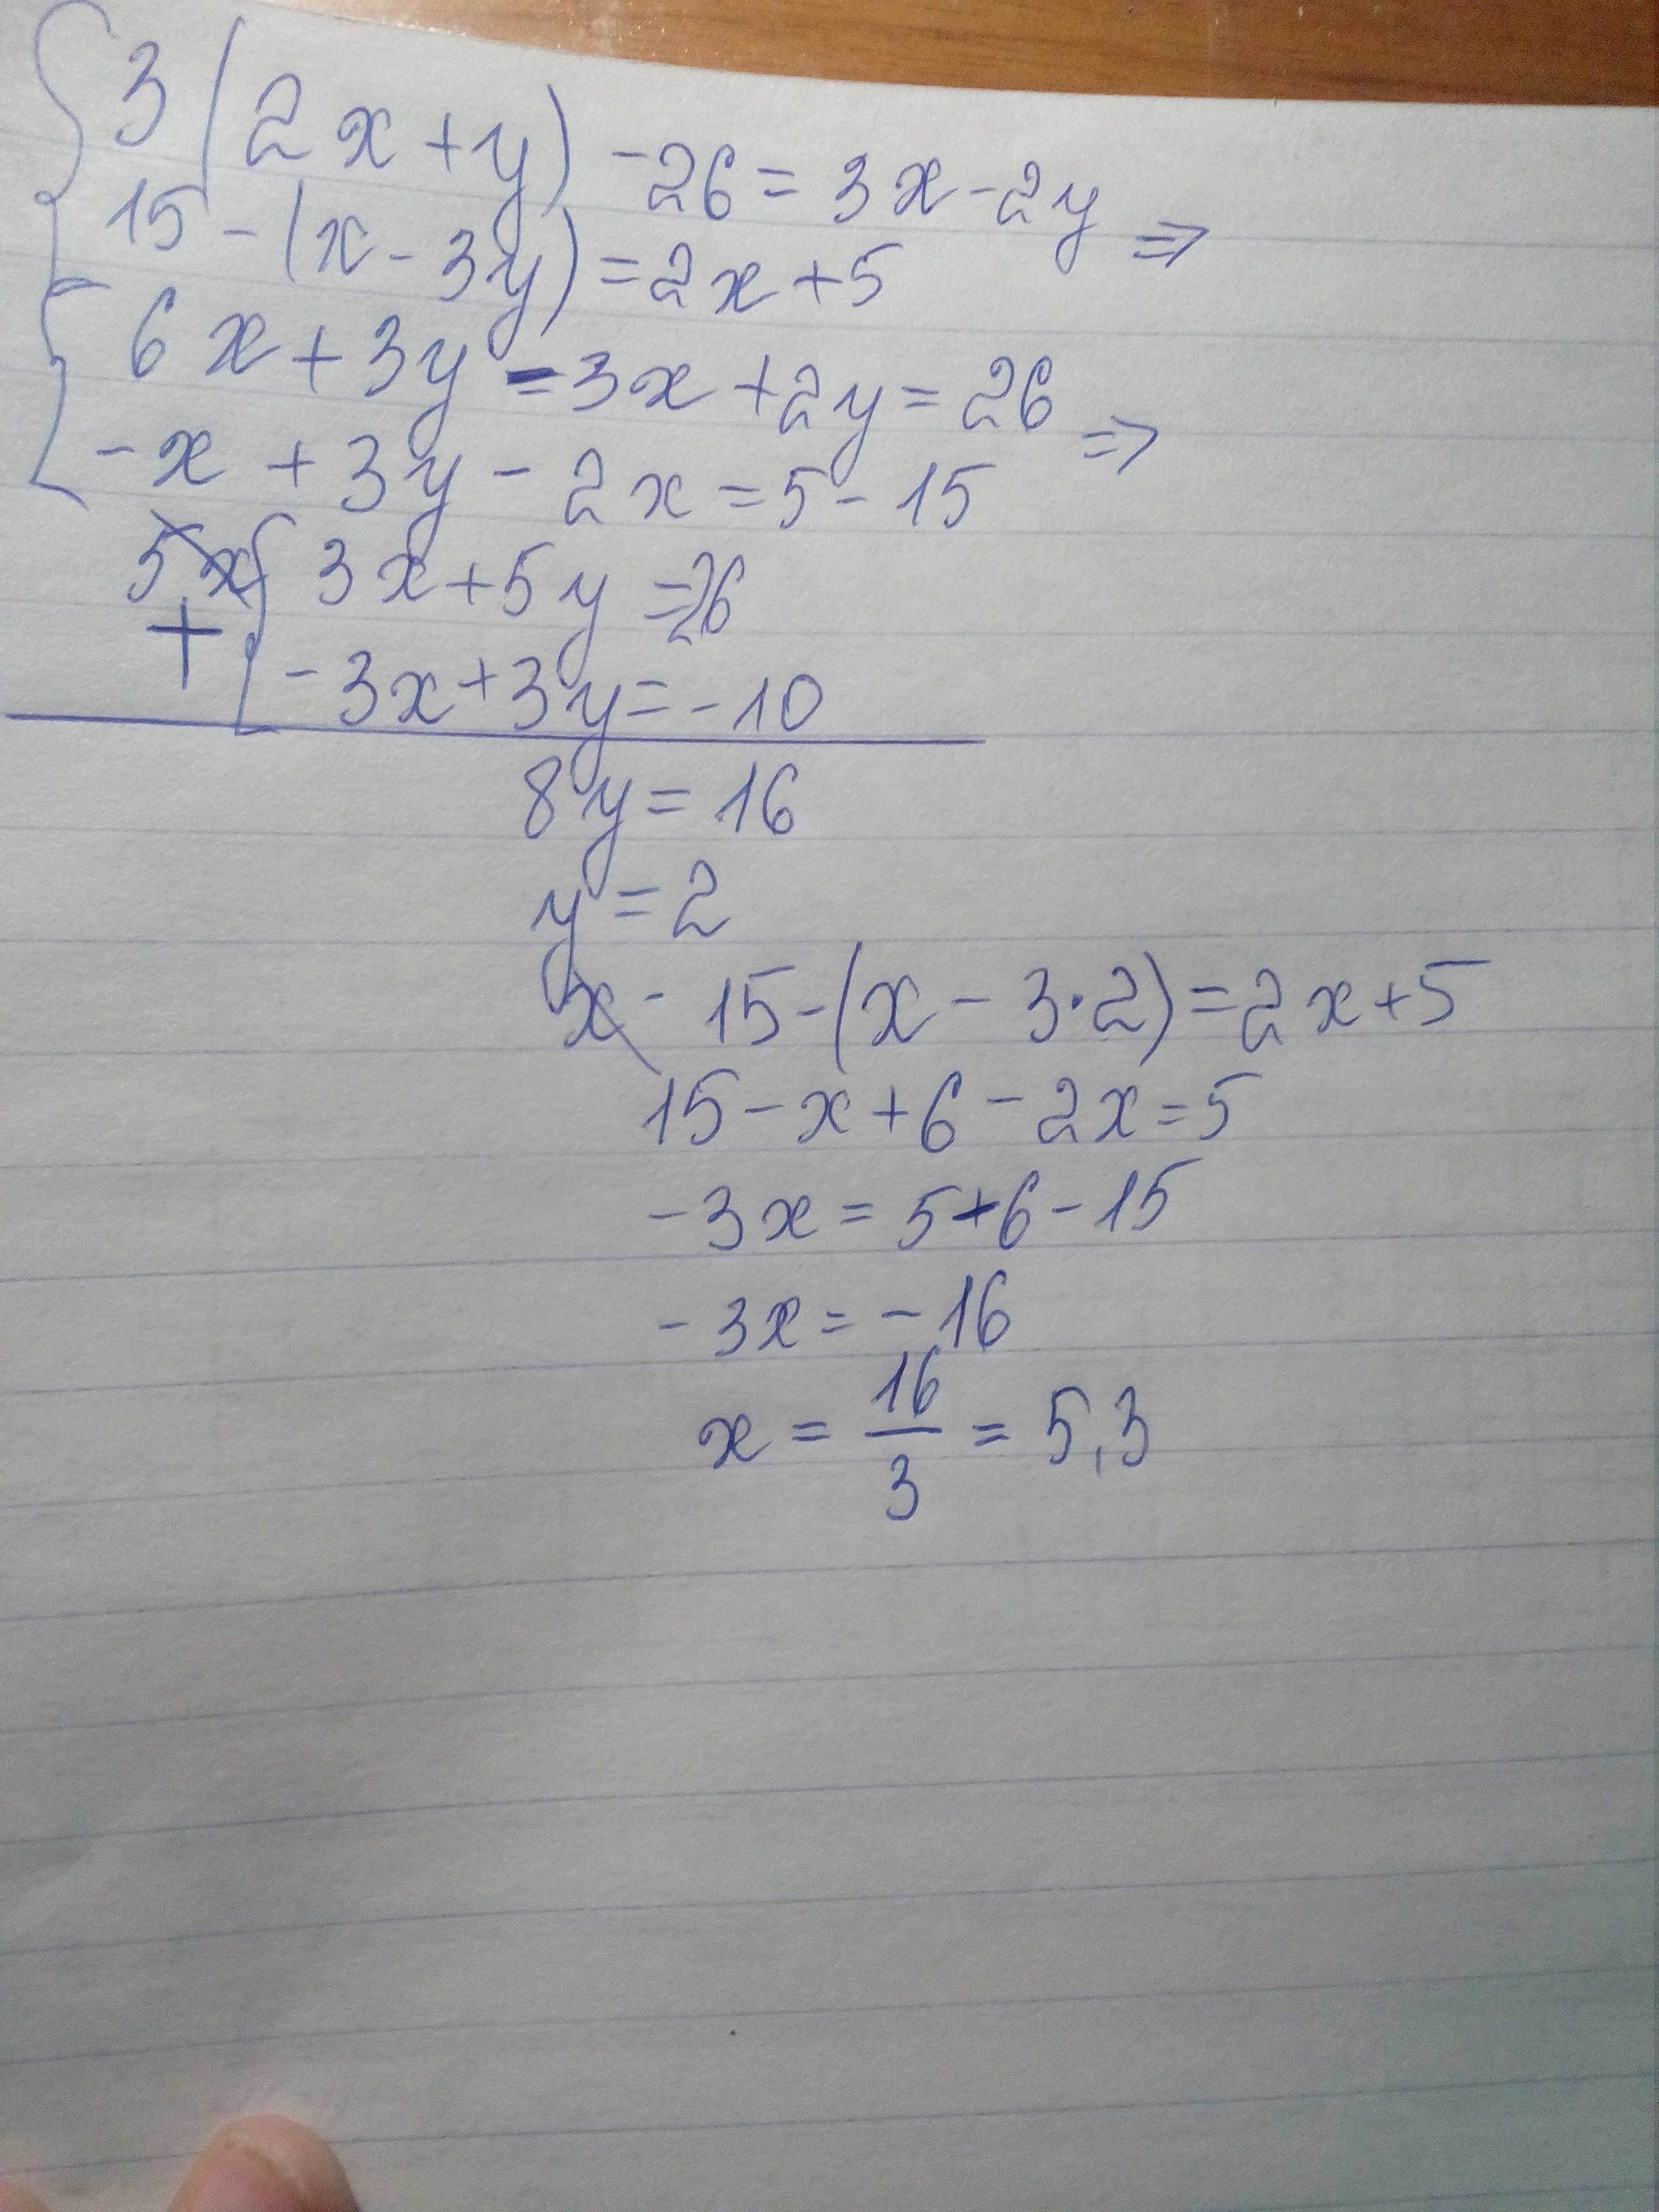 3(2x+y)-26=3x-2y
15-(x-3y)=2x+5 ⇒
6x+3y-3x+2y=26
-x+3y-2x=5-15 ⇒
3x+5y=26
+
-3x+3y=-10
8y=16
y=2
15-(x-3·2)=2x+5
15-x+6-2x=5
-3x=5+6-15
-3x=-16
x=16/3=5,3